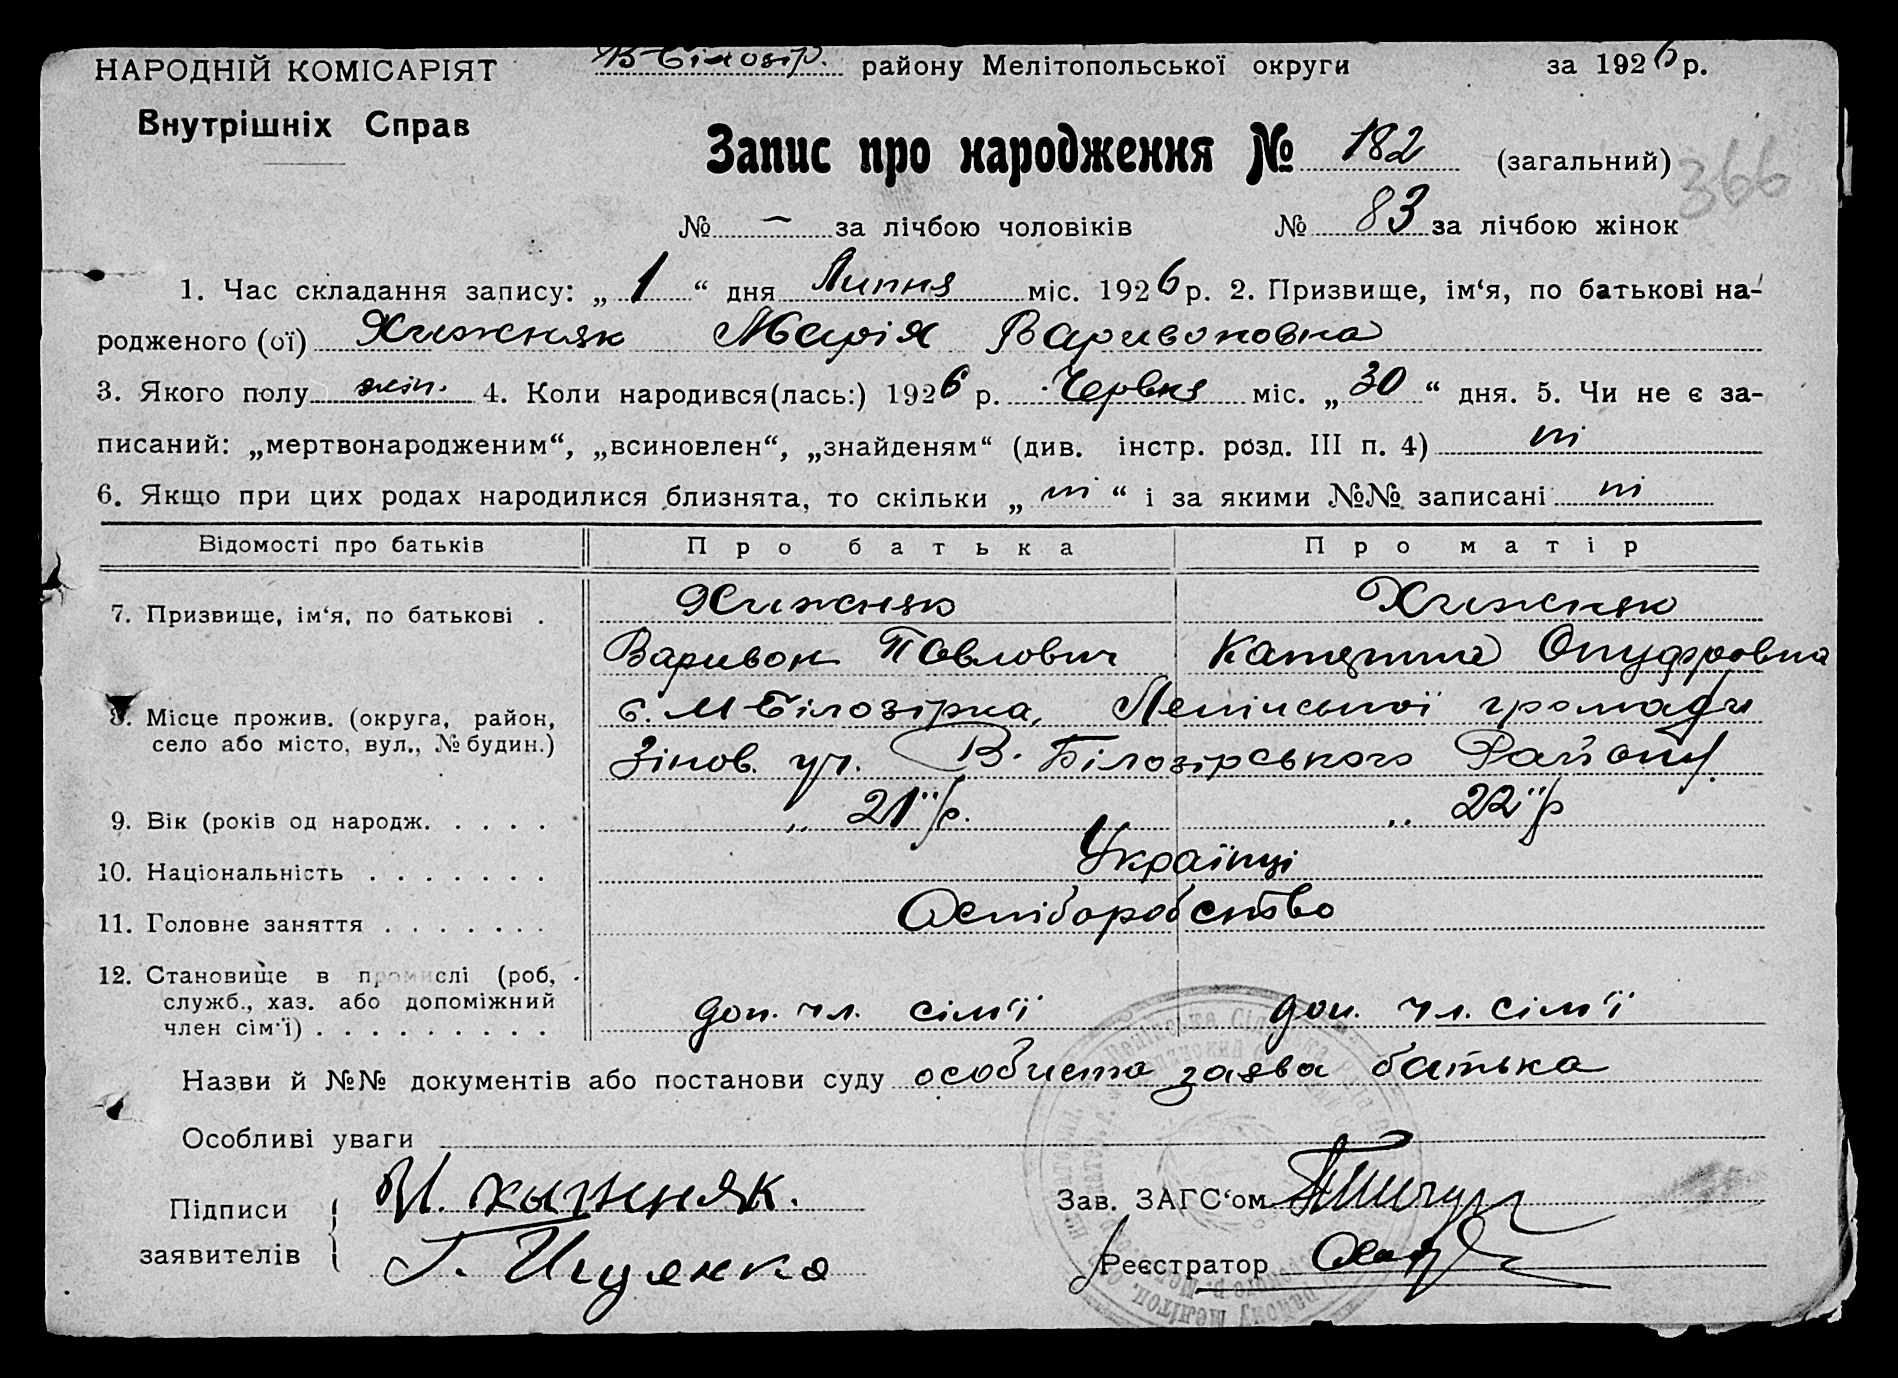 НАРОДНІЙ КОМІСАРІЯТ
Внутрішніх Справ
В-Білозір. району Мелітопольської округи за 1926 р.
Запис про народження № 182 (загальний)
366
№ — за лічбою чоловіків № 83 за лічбою жінок
1. Час складання запису: „ 1 “ дня Липня міс. 1926 р. 2. Призвище, ім‘я, по батькові на-
родженого (ої) Хижняк Марія Варивоновна
3. Якого полу жін. 4. Коли народився(лась:) 1926 р. Червня міс. „ 30 “ дня. 5. Чи не є за-
писаний: „мертвонародженим“, „всиновлен“, „знайденям“ (див. інстр. розд. III п. 4) ні
6. Якщо при цих родах народилися близнята, то скільки „ ні “ і за якими №№ записані ні
Відомості про батьків Про батька Про матір
7. Призвище, ім‘я, по батькові . Хижняк Хижняк
Варивон Павлович Катерина Онуфровна
8. Місце прожив. (округа, район, с. М Білозірка, Ленінської громади
село або місто, вул., № будин.) Зінов. ул. В. Білозірського Району.
9. Вік (років од народж. . . . . „ 21“ р. „ 22“ р
10. Національність . . . . . . . Українці
11. Головне заняття . . . . . . . Хліборобство
12. Становище в промислі (роб,
служб., хаз. або допоміжний
член сім‘ї) . . . . . . . . . доп. чл. сім'ї доп. чл. сім'ї
Назви й №№ документів або постанови суду особиста заява батька
Особливі уваги
Підписи
заявителів
хыжняк.
Г. Ищенко
Зав. ЗАГС‘ом
Реєстратор